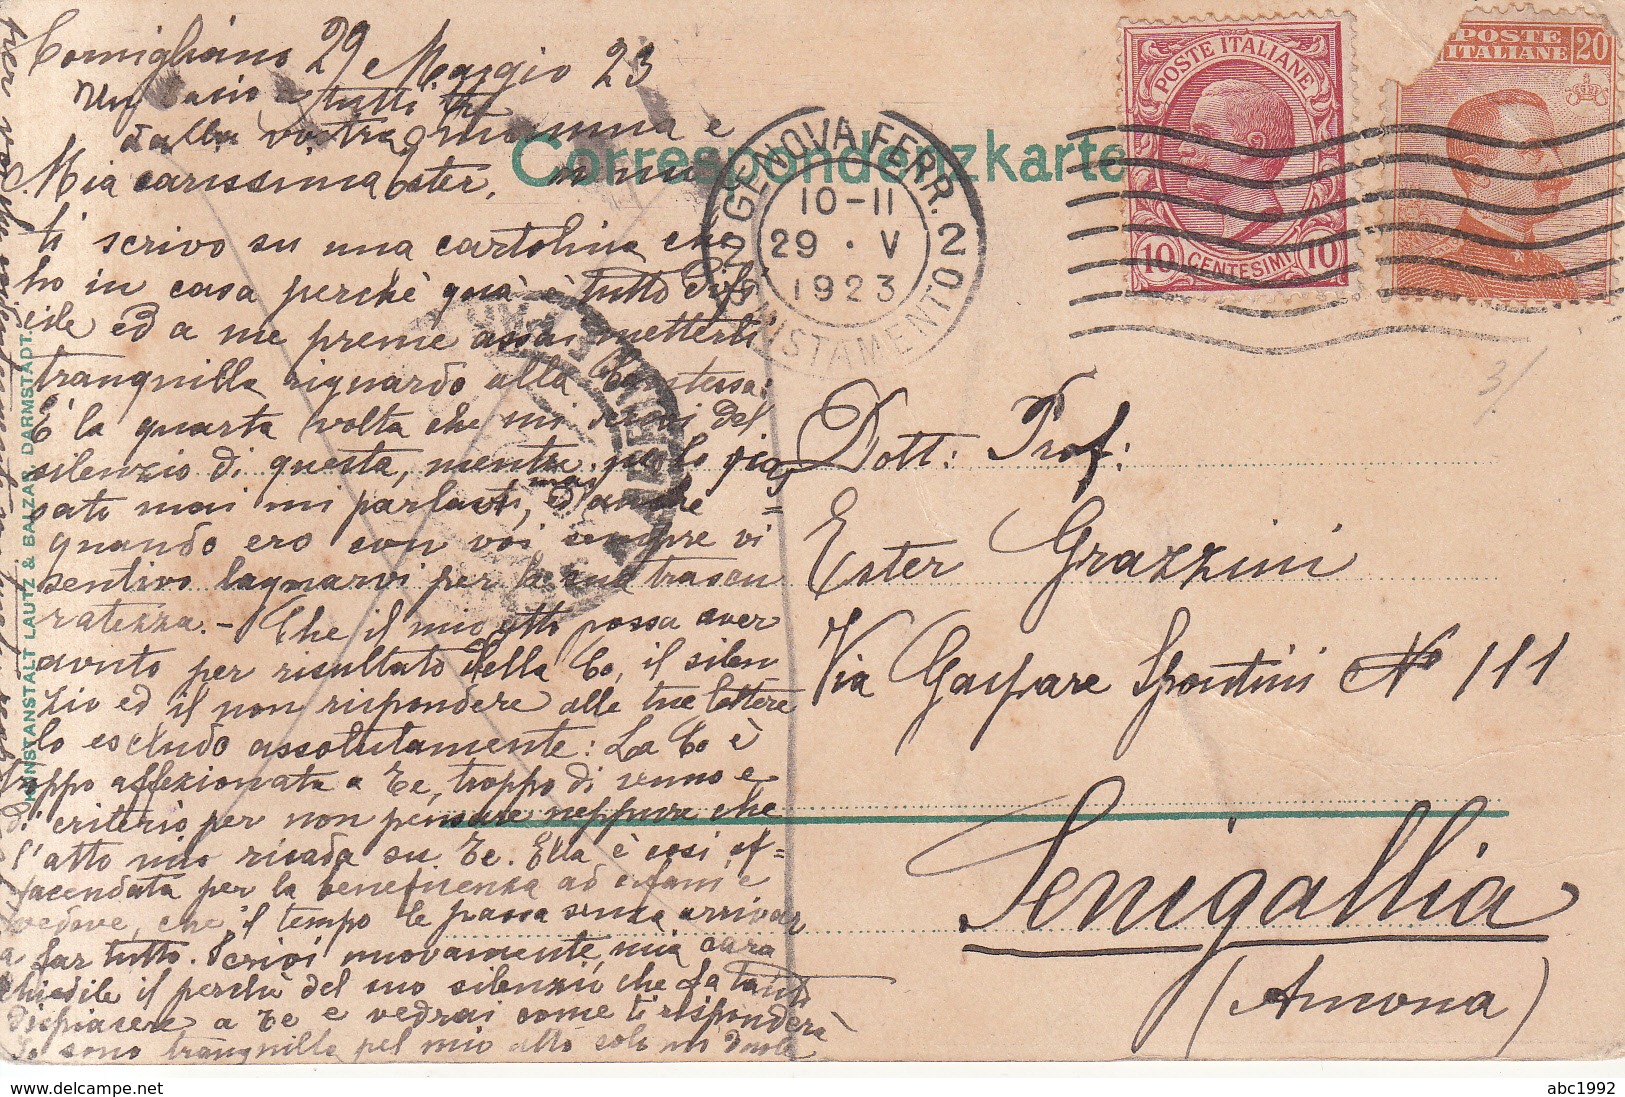 Cornigliano 29 Maggio 23
Un bacio a tutti
dalla vostra mamma e
Mia carissima Ester,
ti scrivo su una cartolina che
ho in casa perchè quà è tutto diffi
cile ed a me preme assai metterti
tranquilla riguardo alla Contessa:
È la quarta volta che mi scrivi del
silenzio di questa, mentre pel
sato mai mi parlasti, d'anche
mai
quando ero con voi sempre vi
sentivo lagnarvi per la sua trascu
ratezza. - Che il mio atto possa aver
avuto per risultato della Co, il silen
zio ed il non rispondere alle tue lettere
lo escludo assolutamente: La Co è
troppo affezionata a Te, troppo di senno e
di criterio per non pensare neppure che
l'atto mio ricada su Te. Ella è così af=
facendata per la beneficenza ad orfani e
vedove, che il tempo le passa senza arrivar
a far tutto. Scrivi nuovamente, mia cara
chiedile il perchè del suo silenzio che fa tanto
dispiacere a Te e vedrai come ti risponderà
Io sono tranquilla pel mio atto solo mi duole
Correspondenzkarte
KUNSTANSTALT LAUTZ & BALZAR, DARMSTADT.
GENOVA FERR. 2
10-11
29 · V
1923
POSTE ITALIANE
10 CENTESIMI 10
POSTE
ITALIANE 20
3/
Dott: Prof:
Ester Grazzini
Via Gaspare Spontini No 111
Senigallia
(Ancona)
delcampe.net
abc1992